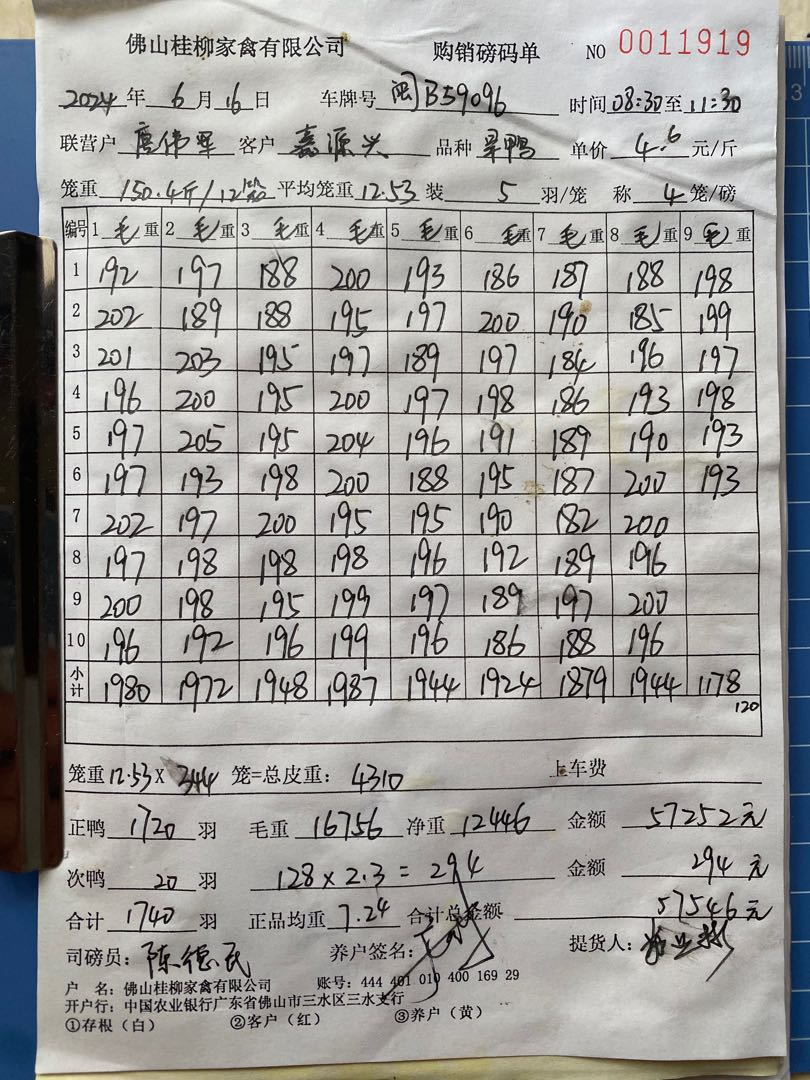 佛山桂柳家禽有限公司 购销磅码单 NO 0011919
2024年 6月 16日 车牌号 闽B59096 时间 08:30至 11:30
联营户 唐伟坚 客户 嘉源兴 品种 旱鸭 单价 4.6 元/斤
笼重 150.4斤/12笼 平均笼重 12.53 装 5 羽/笼 称 4 笼/磅
编号 1 毛重 2 毛重 3 毛重 4 毛重 5 毛重 6 毛重 7 毛重 8 毛重 9 毛重
1 192 197 188 200 193 186 187 188 198
2 202 189 188 195 197 200 190 185 199
3 201 203 195 197 189 197 184 196 197
4 196 200 195 200 197 198 186 193 198
5 197 205 195 204 196 191 189 190 193
6 197 193 198 200 188 195 187 200 193
7 202 197 200 195 195 190 182 200
8 197 198 198 198 196 192 189 196
9 200 198 195 199 197 189 197 200
10 196 192 196 199 196 186 188 196
小计 1980 1972 1948 1987 1944 1924 1879 1944 1178
120
笼重 12.53 X 344 笼=总皮重: 4310 上车费
正鸭 1720 羽 毛重 16756 净重 12446 金额 57252元
次鸭 20 羽 128 × 2.3 = 294 金额 294 元
合计 1740 羽 正品均重 7.24 合计总金额 57546元
司磅员: 陈德民 养户签名: 提货人:
户 名: 佛山桂柳家禽有限公司 账号: 444 401 010 400 169 29
开户行: 中国农业银行广东省佛山市三水区三水支行
①存根(白) ②客户(红) ③养户(黄)